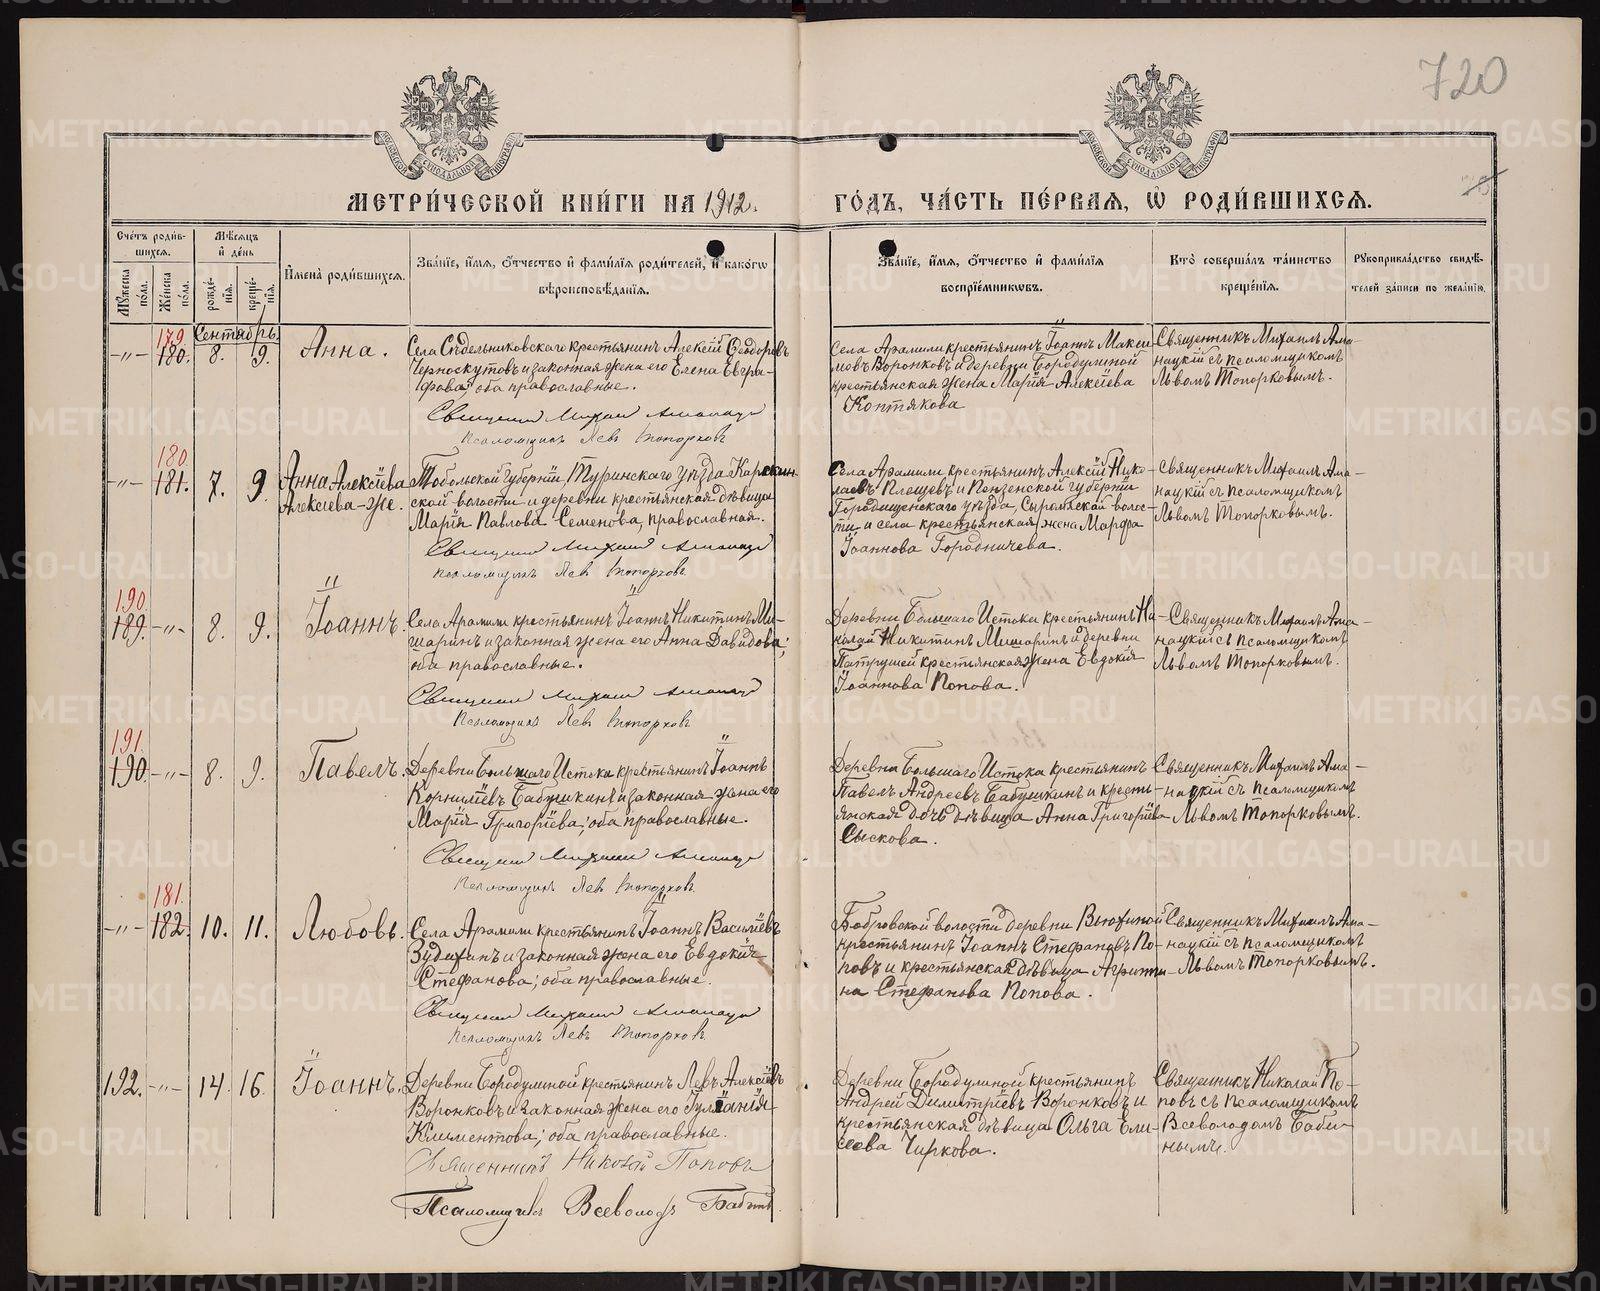 720
МЕТРИЧЕСКОЙ КНИГИ НА 1912. ГОДЪ, ЧАСТЬ ПЕРВАЯ, Ѡ РОДИВШИХСЯ.
Счетъ родившихся.
Мужеска пола.
Женска пола.
Мѣсяцъ и день
рожденія.
крещенія.
Имена родившихся.
Званіе, имя, отчество и фамилія родителей, и какогѡ вѣроисповѣданія.
Званіе, имя, отчество и фамилія воспріемникѡвъ.
Кто совершалъ таинство крещенія.
Рукоприкладство свидѣтелей записи по желанію.
Сентябрь.
179.
-"- 180. 8. 9. Анна.
Села Сидельниковскаго крестьянинъ Алексій Ѳеодоровъ
Черноскутовъ и законная жена его Елена Евгра-
фова; оба православные.
Священникъ Михаилъ Аманацкій
Псаломщикъ Левъ Топорковъ
Села Арамили крестьянинъ Іоаннъ Макси-
мовъ Воронковъ и деревни Бородулиной
крестьянская жена Марія Алексіева
Коптякова
Священникъ Михаилъ Ама-
нацкій съ псаломщикомъ
Львомъ Топорковымъ.
180
-"- 181. 7. 9. Анна Алексіева
Алексіева-же.
Тобольской губерніи Туринскаго уѣзда Каркин-
ской волости и деревни крестьянская дѣвица
Марія Павлова Семенова, православная.
Священникъ Михаилъ Аманацкій
Псаломщикъ Левъ Топорковъ
Села Арамили крестьянинъ Алексій Нико-
лаевъ Плещевъ и Пензенской губерніи
Городищенскаго уѣзда, Сыромяской волос-
ти и села крестьянская жена Марѳа
Іоаннова Городничева.
Священникъ Михаилъ Ама-
нацкій съ псаломщикомъ
Львомъ Топорковымъ.
190.
189. -"- 8. 9. Іоаннъ.
Села Арамили крестьянинъ Іоаннъ Никитинъ Ми-
шаринъ и законная жена его Анна Давидова;
оба православные.
Священникъ Михаилъ Аманацкій
Псаломщикъ Левъ Топорковъ
Деревни Большаго Истока крестьянинъ Ни-
колай Никитинъ Мишаринъ и деревни
Патрушей крестьянская жена Евдокія
Іоаннова Попова.
Священникъ Михаилъ Ама-
нацкій съ псаломщикомъ
Львомъ Топорковымъ.
191.
190. -"- 8. 9. Павелъ.
Деревни Большаго Истока крестьянинъ Іоаннъ
Корниліевъ Бабушкинъ и законная жена его
Марія Григоріева; оба православные.
Священникъ Михаилъ Аманацкій
Псаломщикъ Левъ Топорковъ
Деревни Большаго Истока крестьянинъ
Павелъ Андреевъ Бабушкинъ и кресть-
янская дочь дѣвица Анна Григоріева
Сыскова.
Священникъ Михаилъ Ама-
нацкій съ псаломщикомъ
Львомъ Топорковымъ.
181.
-"- 182. 10. 11. Любовь.
Села Арамили крестьянинъ Іоаннъ Василіевъ
Зудихинъ и законная жена его Евдокія
Стефанова; оба православные.
Священникъ Михаилъ Аманацкій
Псаломщикъ Левъ Топорковъ
Бобровской волости деревни Вьюхиной
крестьянинъ Іоаннъ Стефановъ По-
повъ и крестьянская дѣвица Агриппи-
на Стефанова Попова.
Священникъ Михаилъ Ама-
нацкій съ псаломщикомъ
Львомъ Топорковымъ.
192. -"- 14. 16. Іоаннъ.
Деревни Бородулиной крестьянинъ Левъ Алексіевъ
Воронковъ и законная жена его Іуліанія
Климентова; оба православные.
Священникъ Николай Поповъ
Псаломщикъ Всеволодъ Бабинъ
Деревни Бородулиной крестьянинъ
Андрей Димитріевъ Воронковъ и
крестьянская дѣвица Ольга Ели-
сеева Чиркова.
Священникъ Николай По-
повъ съ псаломщикомъ
Всеволодомъ Баби-
нымъ.
METRIKI.GASO-URAL.RU